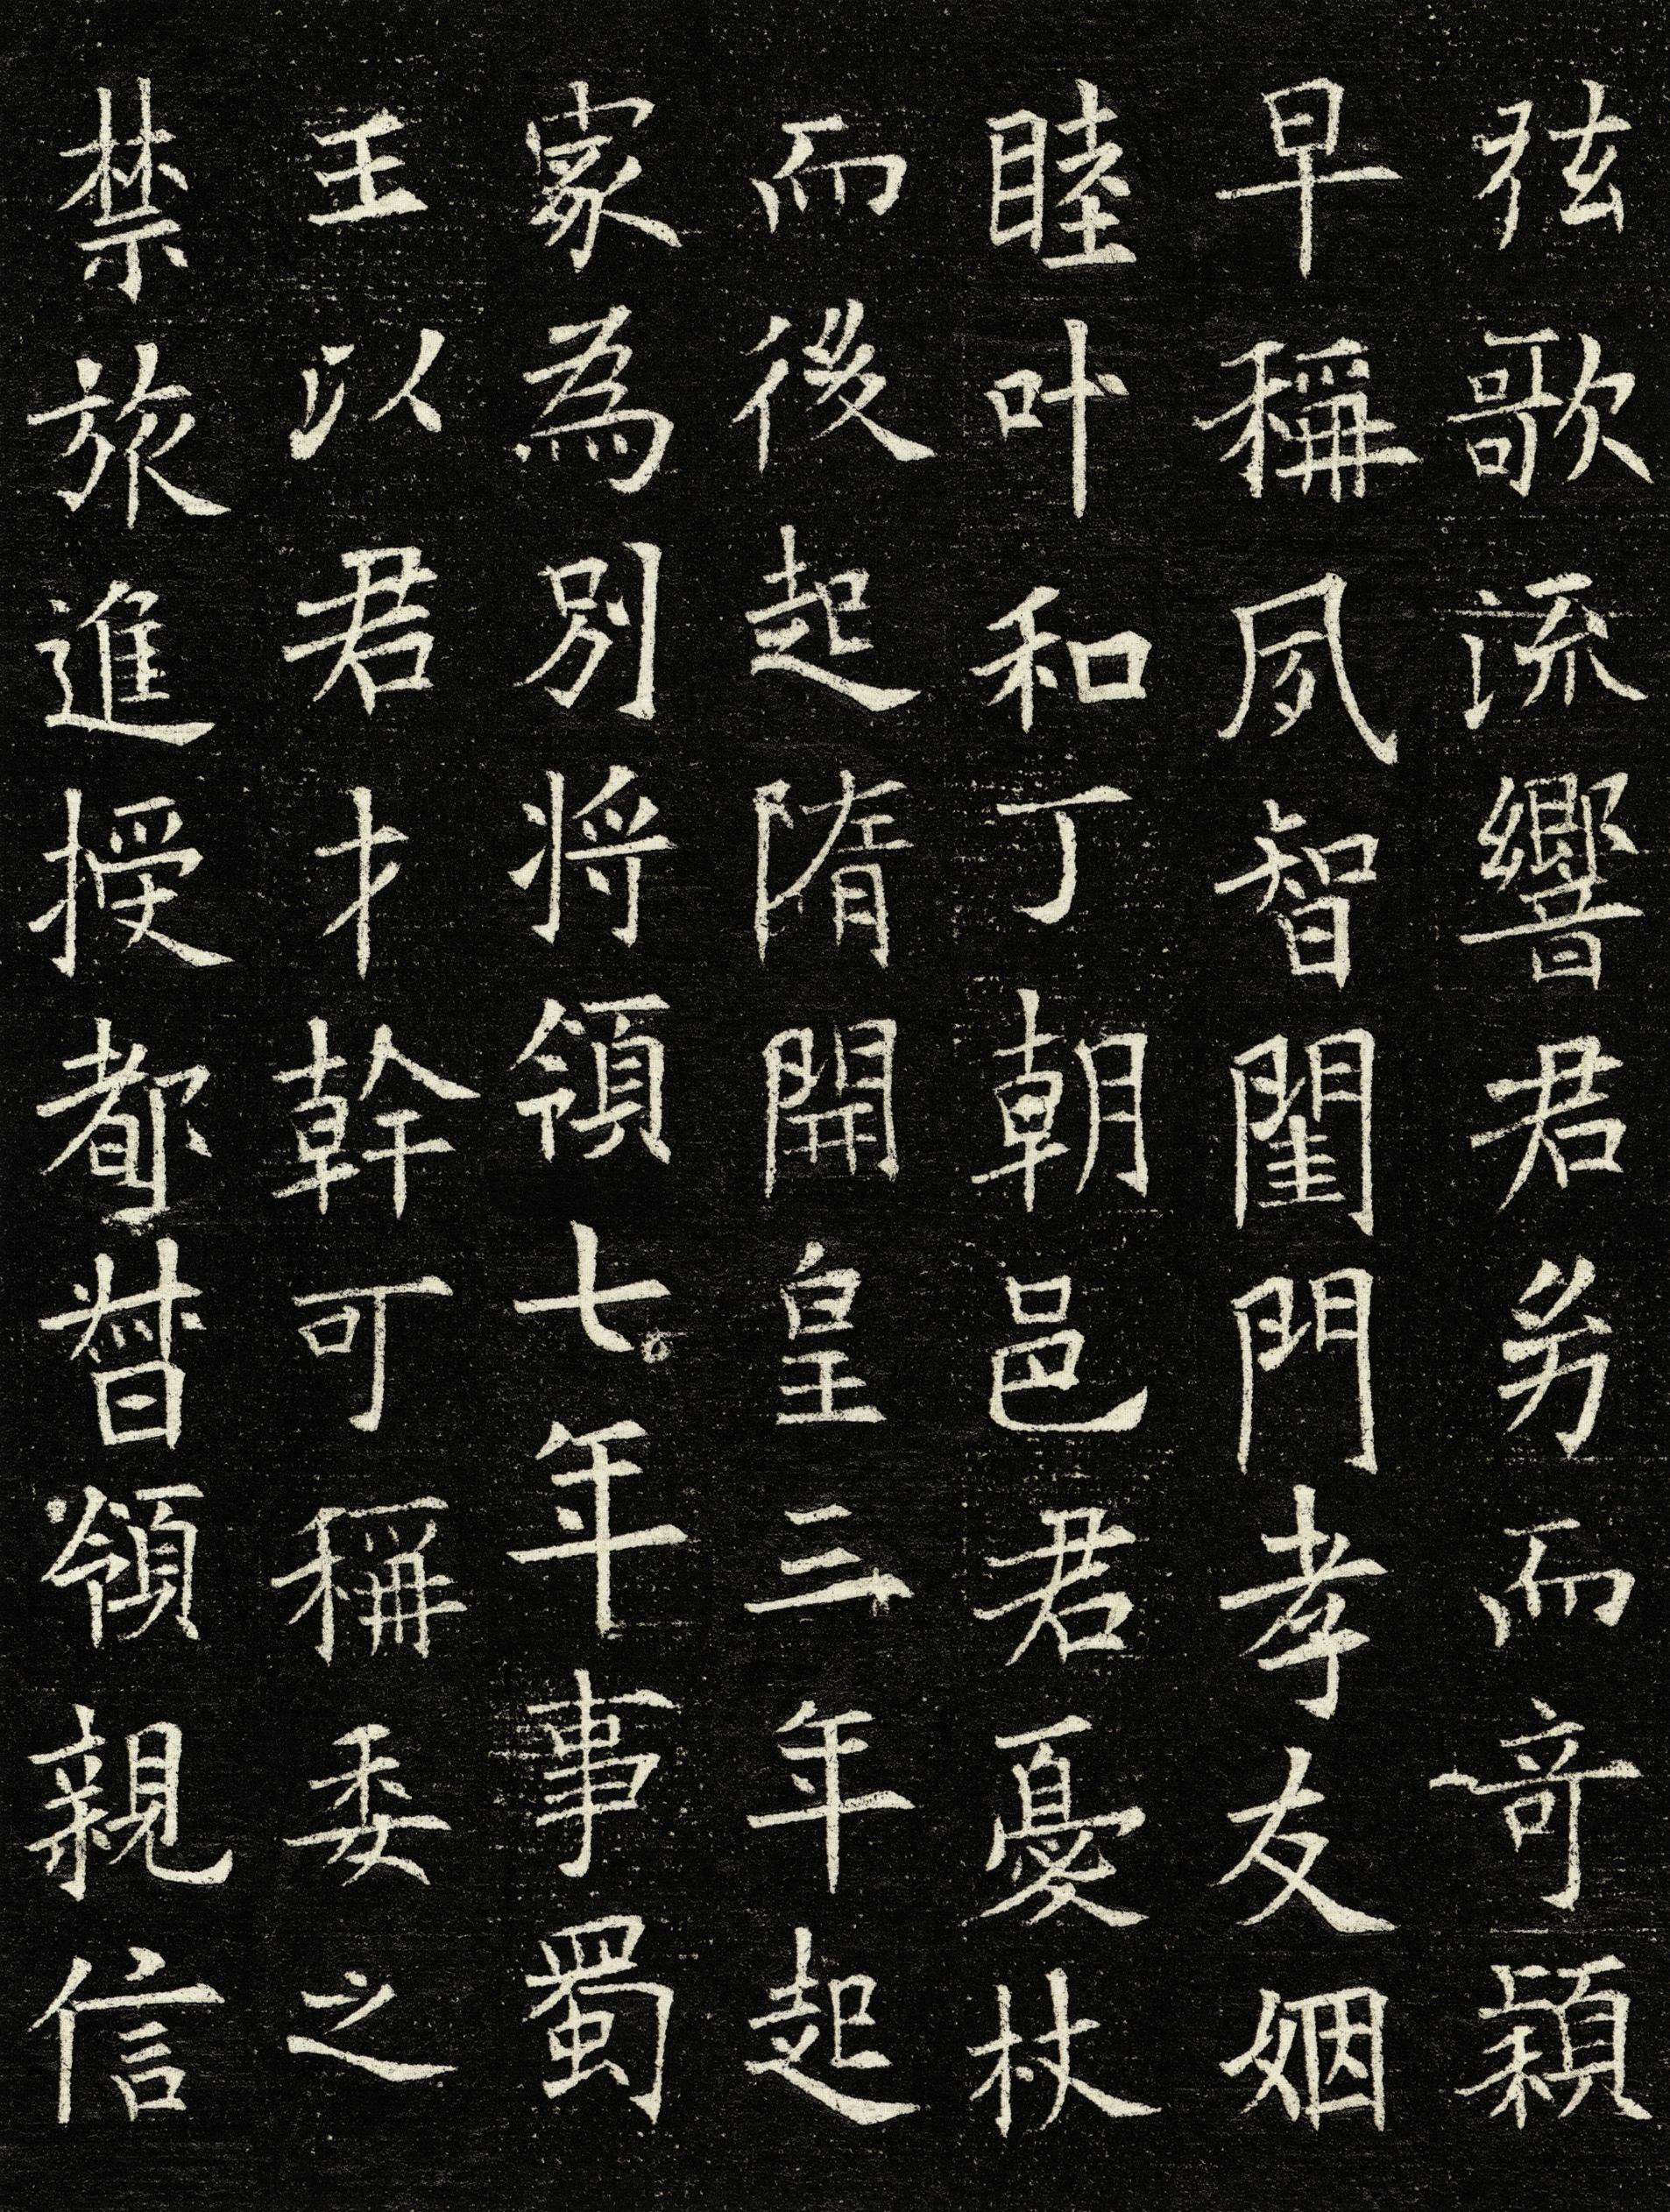 弦歌流響君㓜而竒穎
早稱夙智閨門孝友姻
睦叶和丁朝邑君憂杖
而後起隋開皇三年起
家為別將領七年事蜀
王以君才幹可稱委之
禁旅進授都督領親信